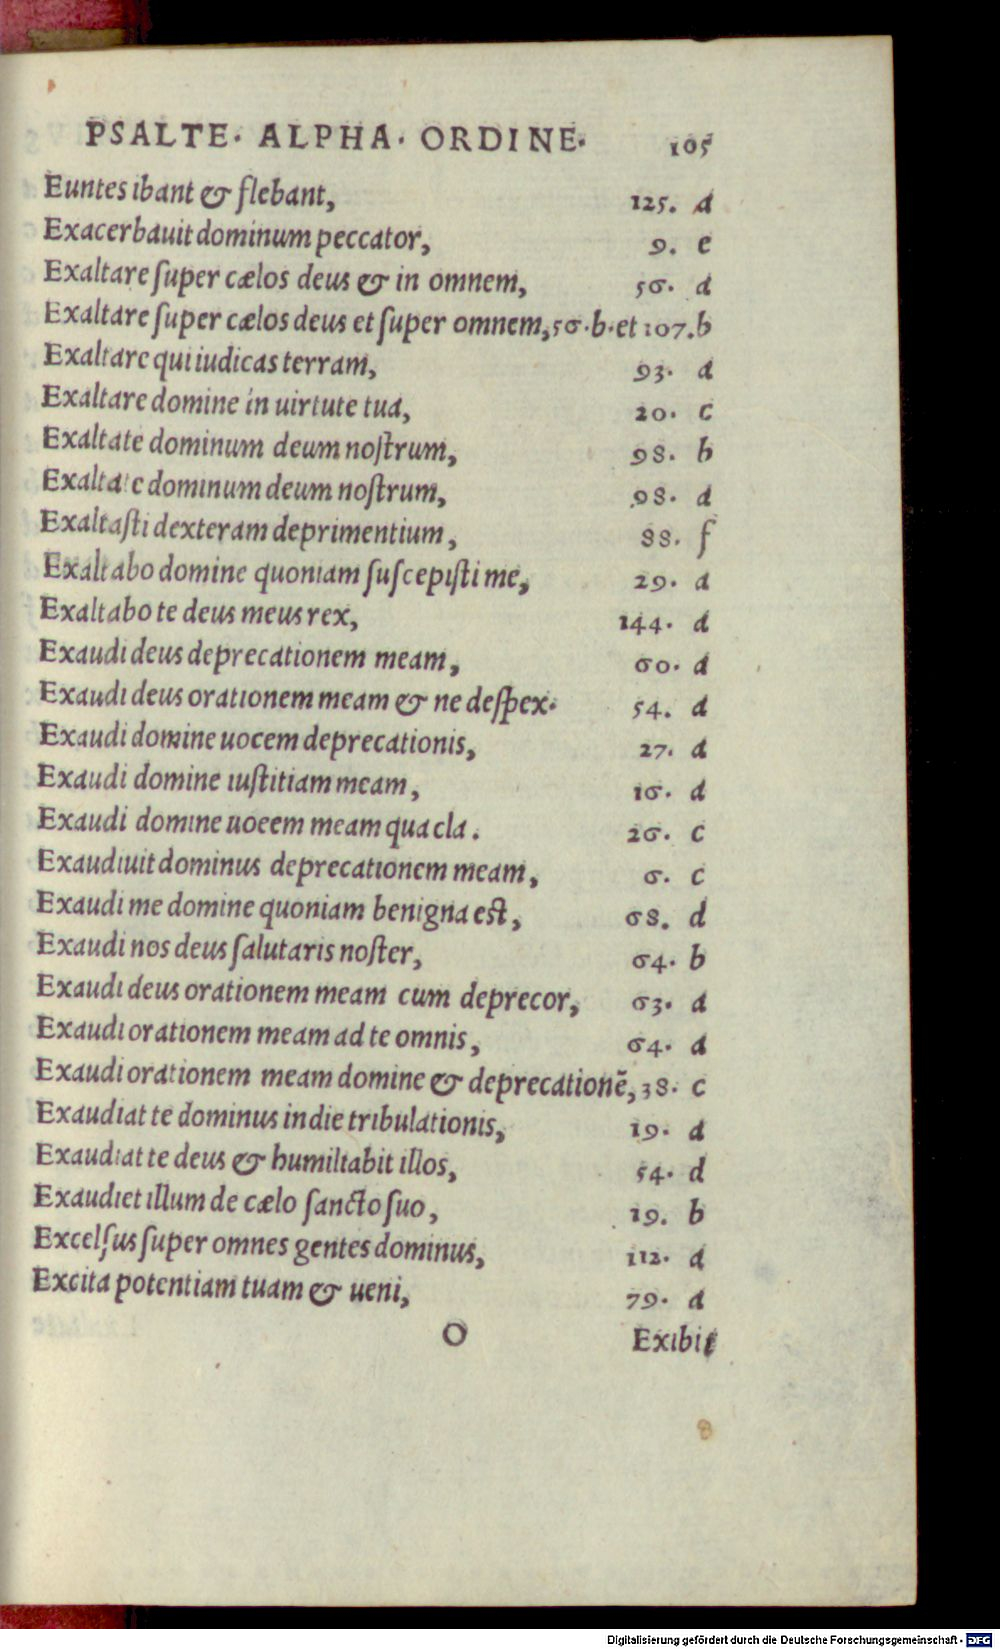 PSALTE· ALPHA· ORDINE· 105
Euntes ibant & flebant, 125. d
Exacerbauit dominum peccator, 9. e
Exaltare ſuper cælos deus & in omnem, 56. d
Exaltare ſuper cælos deus et ſuper omnem, 56.b.et 107.b
Exaltare qui iudicas terram, 93. a
Exaltare domine in uirtute tua, 20. c
Exaltate dominum deum noſtrum, 98. b
Exaltate dominum deum noſtrum, 98. d
Exaltaſti dexteram deprimentium, 88. f
Exaltabo domine quoniam ſuſcepiſti me, 29. a
Exaltabo te deus meus rex, 144. a
Exaudi deus deprecationem meam, 60. a
Exaudi deus orationem meam & ne deſpex. 54. a
Exaudi domine uocem deprecationis, 27. a
Exaudi domine iuſtitiam meam, 16. a
Exaudi domine uoeem meam qua cla. 26. c
Exaudiuit dominus deprecationem meam, 6. c
Exaudi me domine quoniam benigna eſt, 68. d
Exaudi nos deus ſalutaris noſter, 64. b
Exaudi deus orationem meam cum deprecor, 63. a
Exaudi orationem meam ad te omnis, 64. a
Exaudi orationem meam domine & deprecationē, 38. c
Exaudiat te dominus in die tribulationis, 19. a
Exaudiat te deus & humiliabit illos, 54. d
Exaudiet illum de cælo ſancto ſuo, 19. b
Excelſus ſuper omnes gentes dominus, 112. a
Excita potentiam tuam & ueni, 79. a
O Exibit
Digitalisierung gefördert durch die Deutsche Forschungsgemeinschaft - DFG